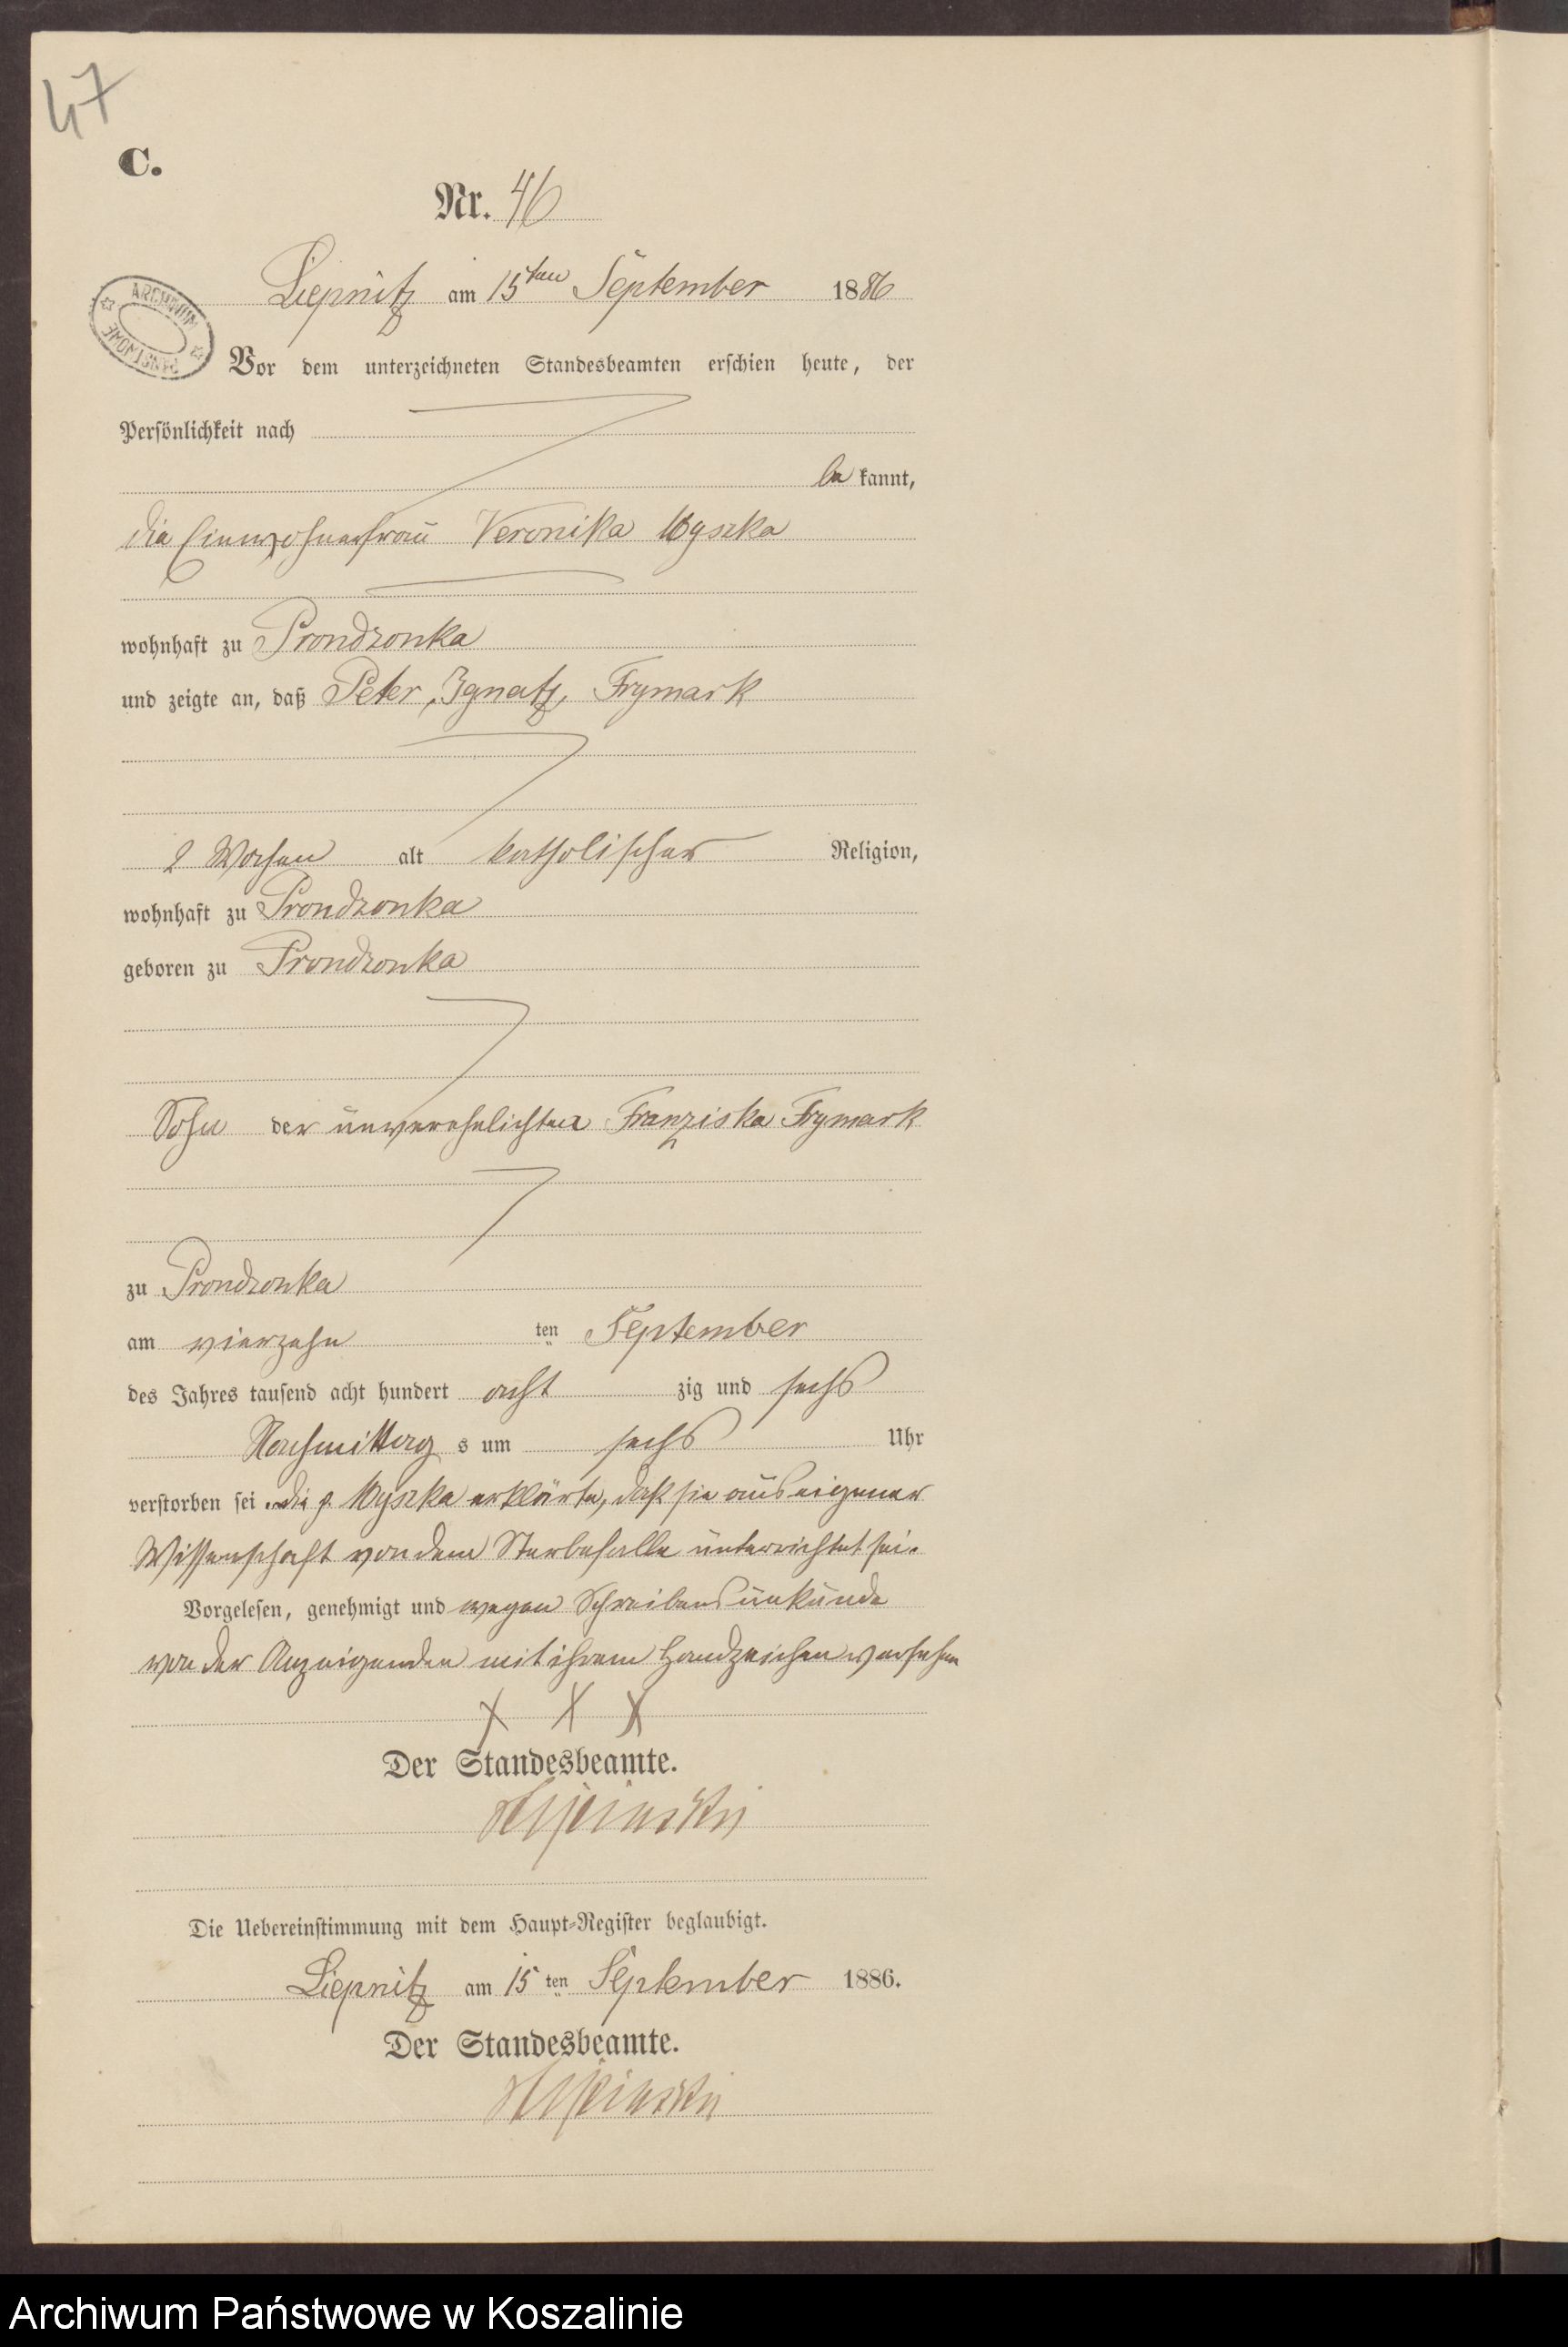 47
C.
Nr. 46
Liepnitz am 15ten September 1886
ARCHIWUM PAŃSTWOWE
Vor dem unterzeichneten Standesbeamten erschien heute, der
Persönlichkeit nach
be kannt,
die Einwohnerfrau Veronika Wyszka
wohnhaft zu Prondzonka
und zeigte an, daß Peter, Ignatz, Frymark
2 Wochen alt katholischer Religion,
wohnhaft zu Prondzonka
geboren zu Prondzonka
Sohn der unverehelichten Franziska Frymark
zu Prondzonka
am vierzehn ten September
des Jahres tausend acht hundert acht zig und sechs
Nachmittag s um sechs Uhr
verstorben sei. die p. Wyszka erklärte, daß sie aus eigener
Wissenschaft von dem Sterbefalle unterrichtet sei.
Vorgelesen, genehmigt und wegen Schreibensunkunde
von der Anzeigenden mit ihrem Handzeichen versehen
X X X
Der Standesbeamte.
Die Uebereinstimmung mit dem Haupt-Register beglaubigt.
Liepnitz am 15 ten September 1886.
Der Standesbeamte.
Archiwum Państwowe w Koszalinie